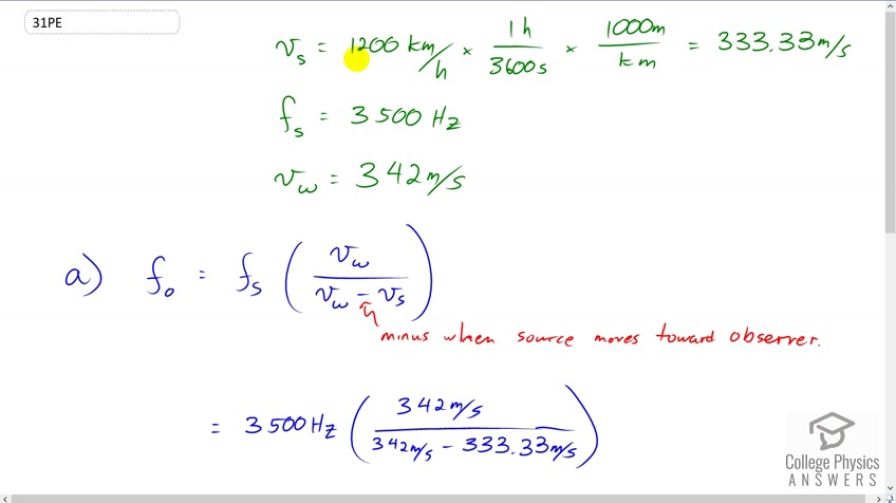 31PE
v_s = 1200 km/h × 1h/3600s × 1000m/km = 333.33m/s
f_s = 3500 Hz
v_w = 342m/s
a) f_o = f_s (v_w/(v_w − v_s))
minus when source moves toward observer.
= 3500Hz (342m/s/(342m/s − 333.33m/s))
College Physics
ANSWERS